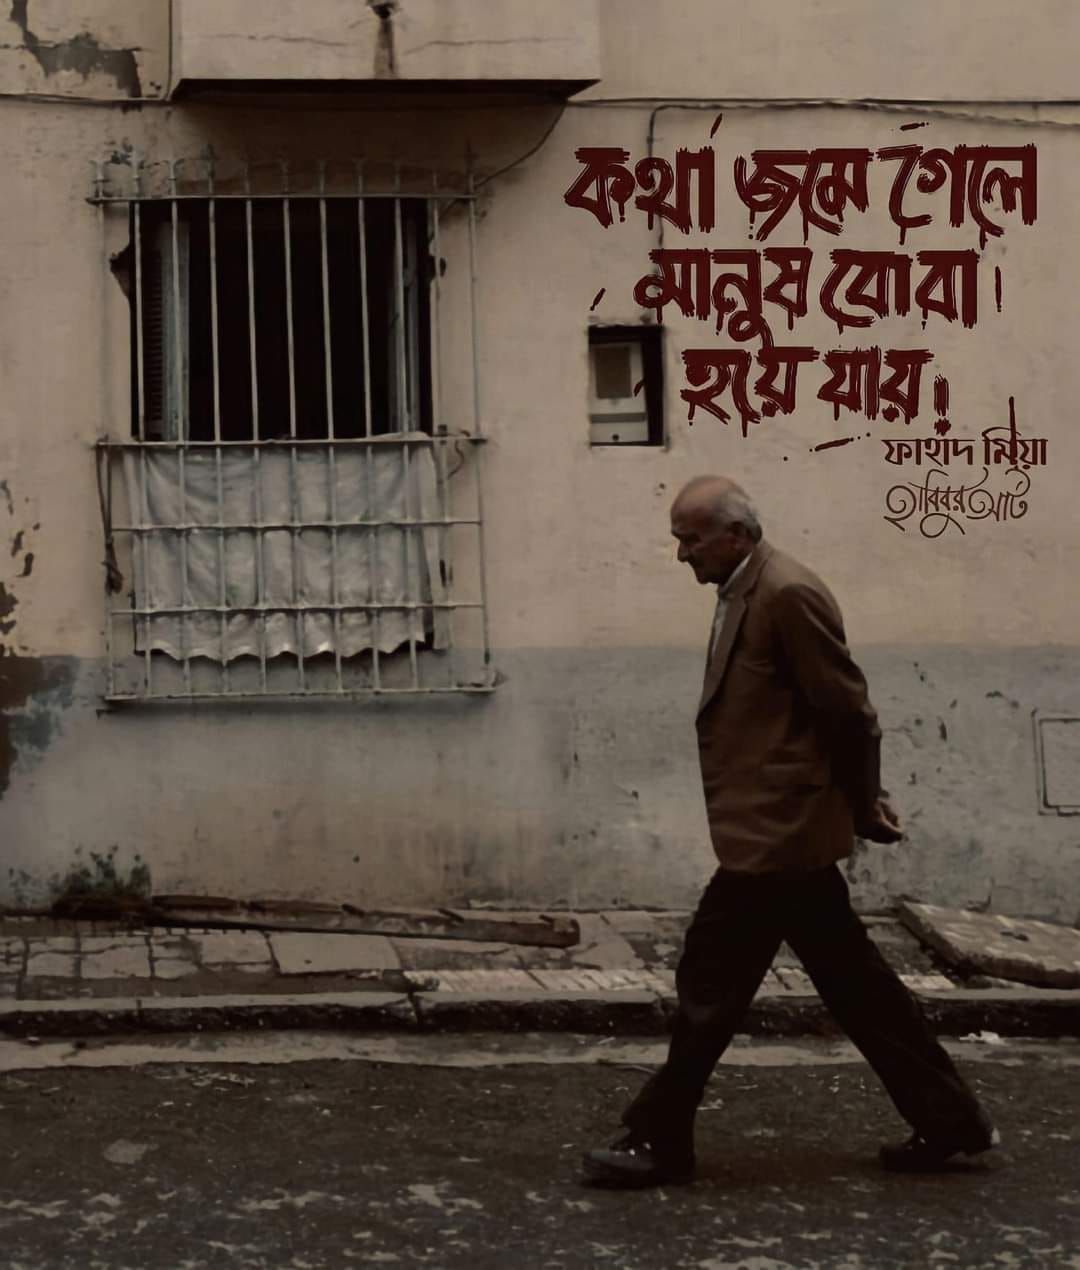 কথা জমে গেলে
মানুষ বোবা
হয়ে যায়!
ফাহাদ মিয়া
হাবিবুর আর্ট